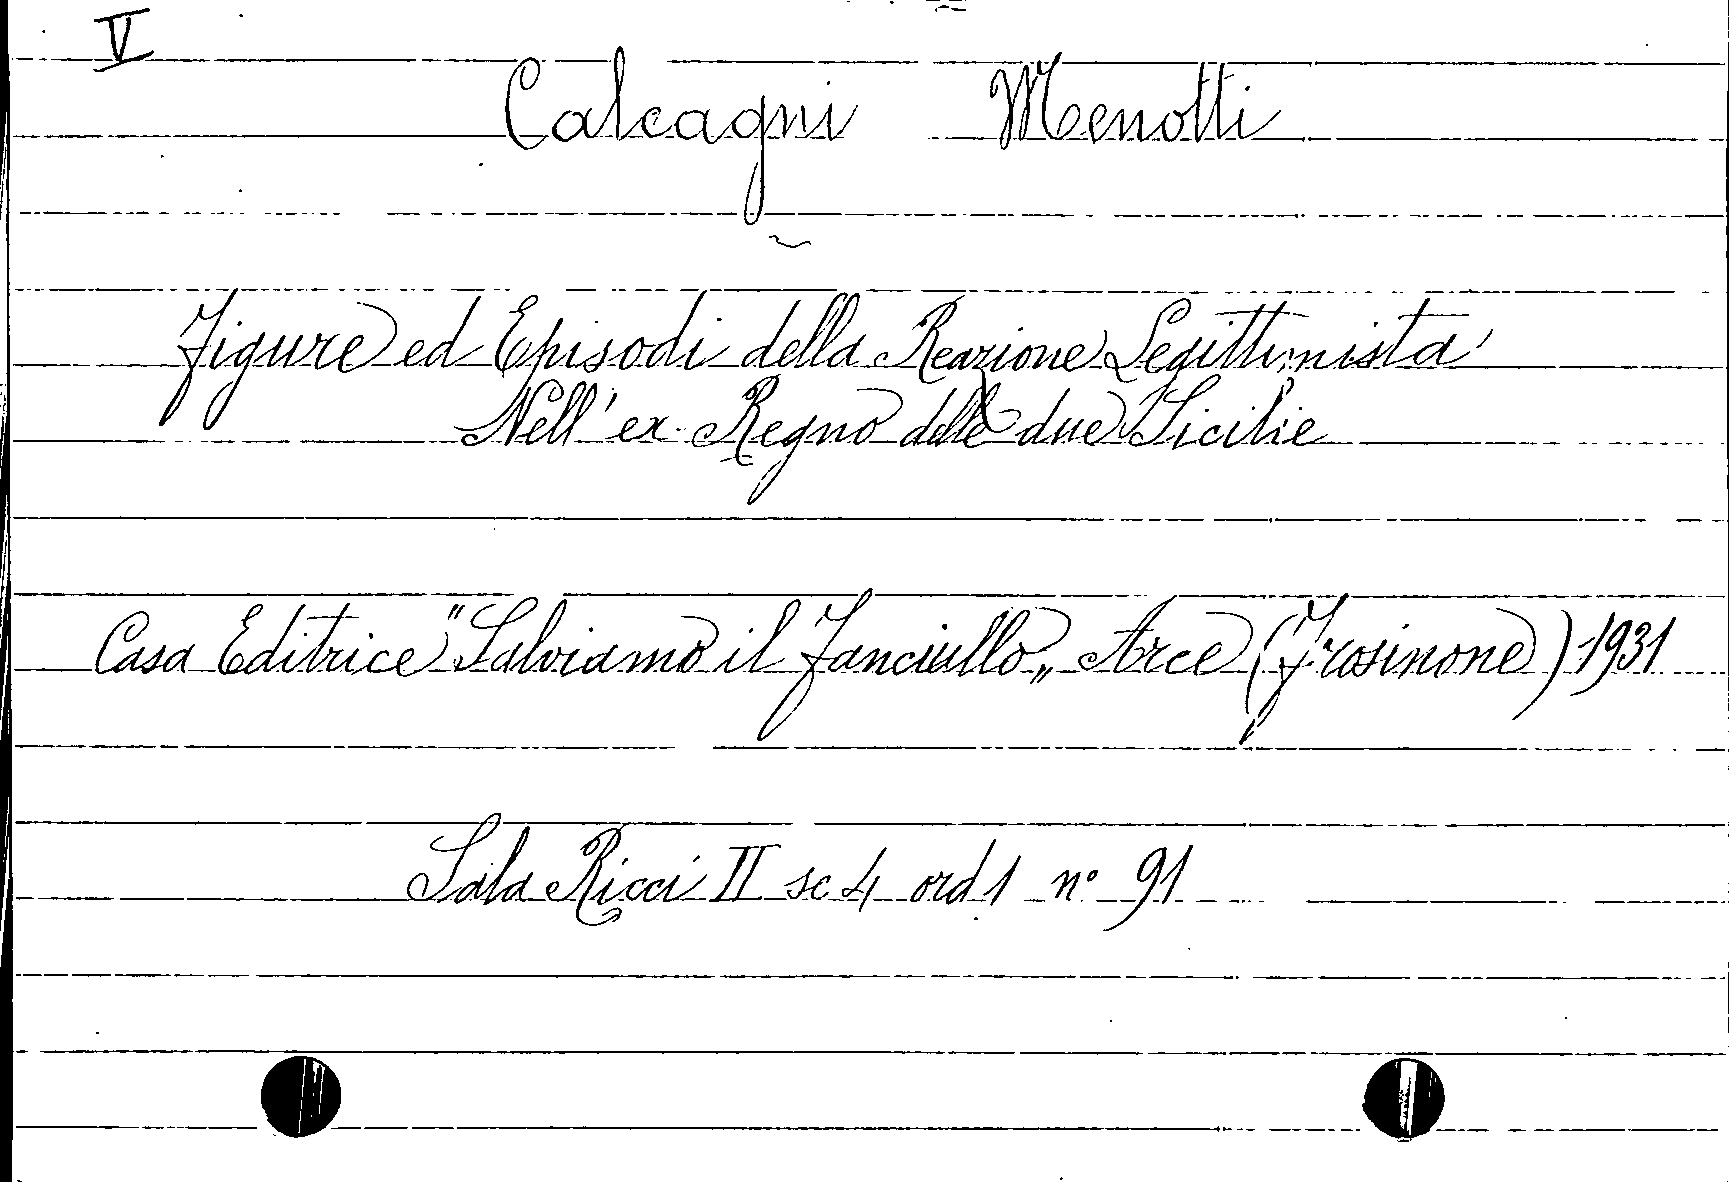 V
Calcagni Menotti
Figure ed Episodi della Reazione Legittimista
Nell'ex Regno delle due Sicilie
Casa Editrice "Salviamo il Fanciullo„ Arce (Frosinone) 1931
Sala Ricci II sc 4 ord 1 n° 91